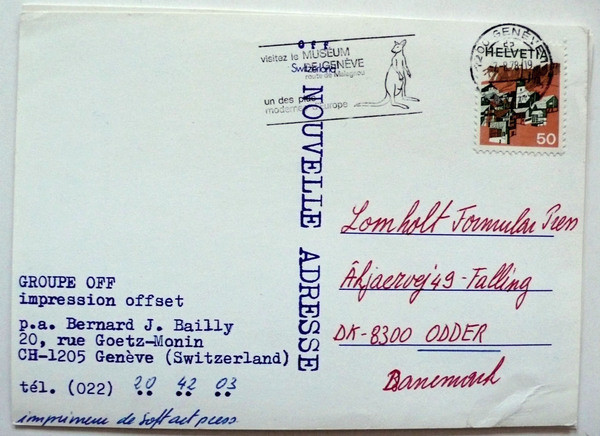 OFF
visitez le MUSEUM
DE GENÈVE
Switzerland
route de Malagnou
un des plus
modernes europe
1200 GENÈVE
HELVETIA
50
NOUVELLE ADRESSE
Lomholt Formular Press
Åkjaervej 49 - Falling
DK-8300 ODDER
Danemark
GROUPE OFF
impression offset
p.a. Bernard J. Bailly
20, rue Goetz-Monin
CH-1205 Genève (Switzerland)
tél. (022) 20 42 03
imprimeur de Soft art press